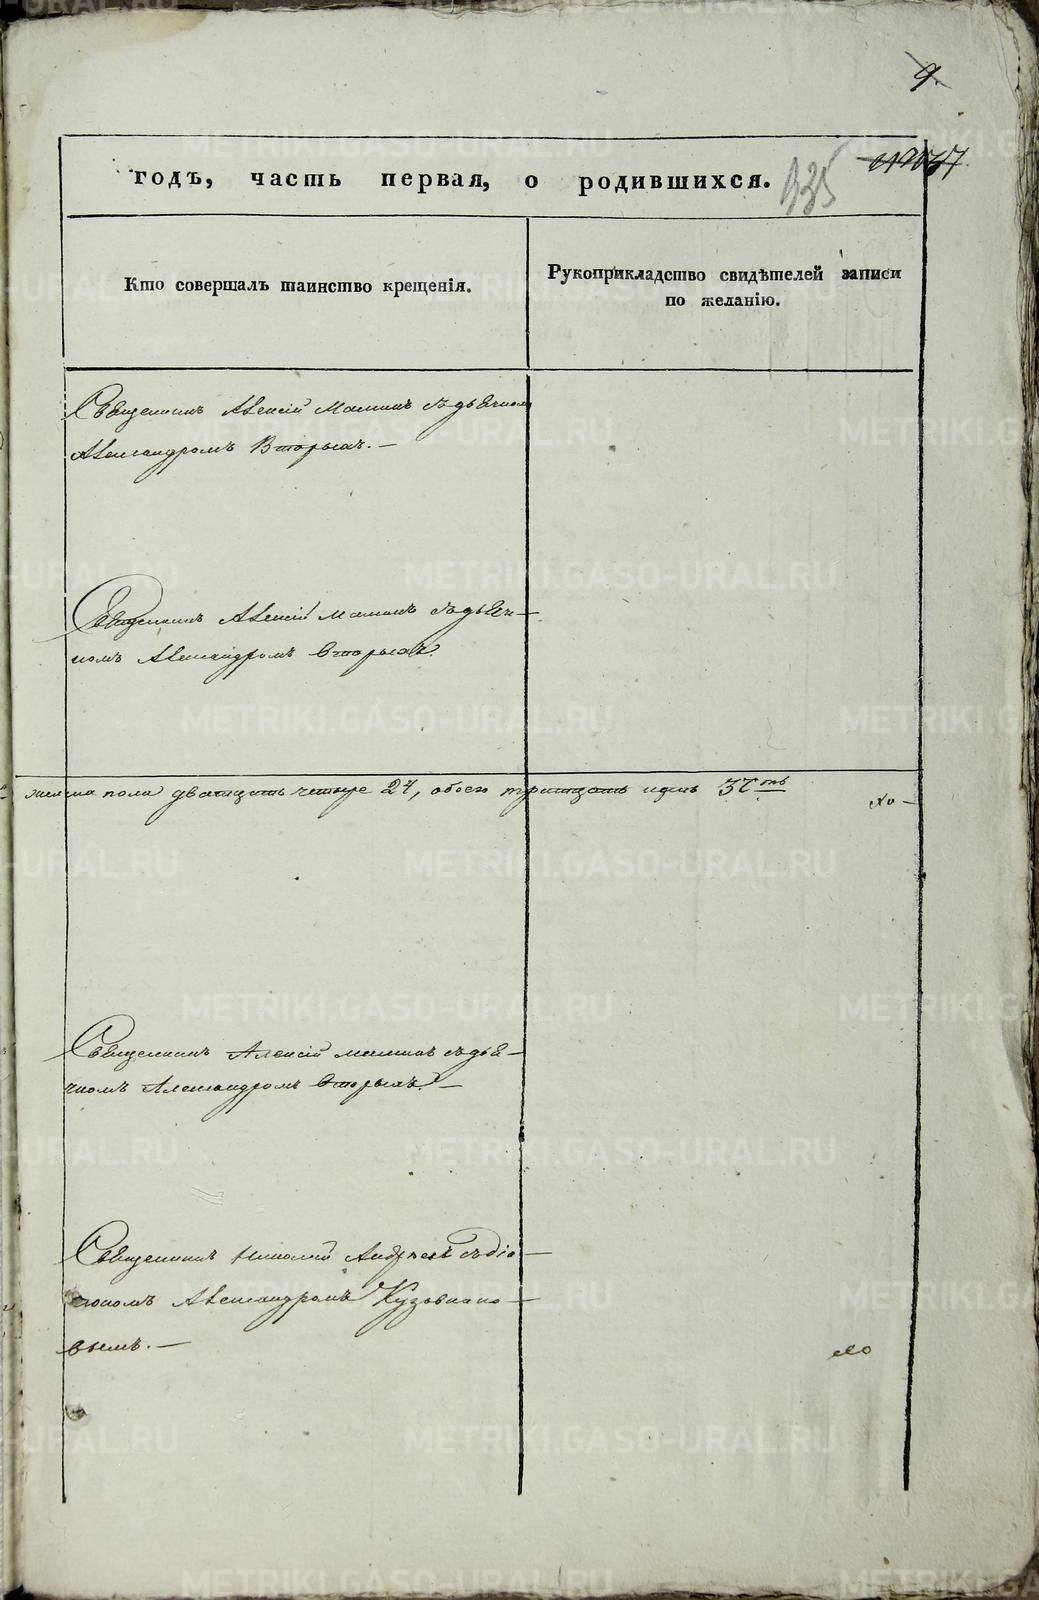 9.
годъ, часть первая, о родившихся.
335
Кто совершалъ таинство крещенія.
Рукоприкладство свидѣтелей записи
по желанію.
Священникъ Алексій Маминъ съ дьячкомъ
Александромъ Вторыхъ. —
Священникъ Алексій Маминъ съ дьяч-
комъ Александромъ Вторыхъ.
женска пола дватцать четыре 24, обоего тритцать
Священникъ Алексій Маминъ съ дья-
чкомъ Александромъ Вторыхъ. —
Священникъ Николай Андреевъ съ діа-
кономъ Александромъ Кузовнико-
вымъ. —
METRIKI.GASO-URAL.RU